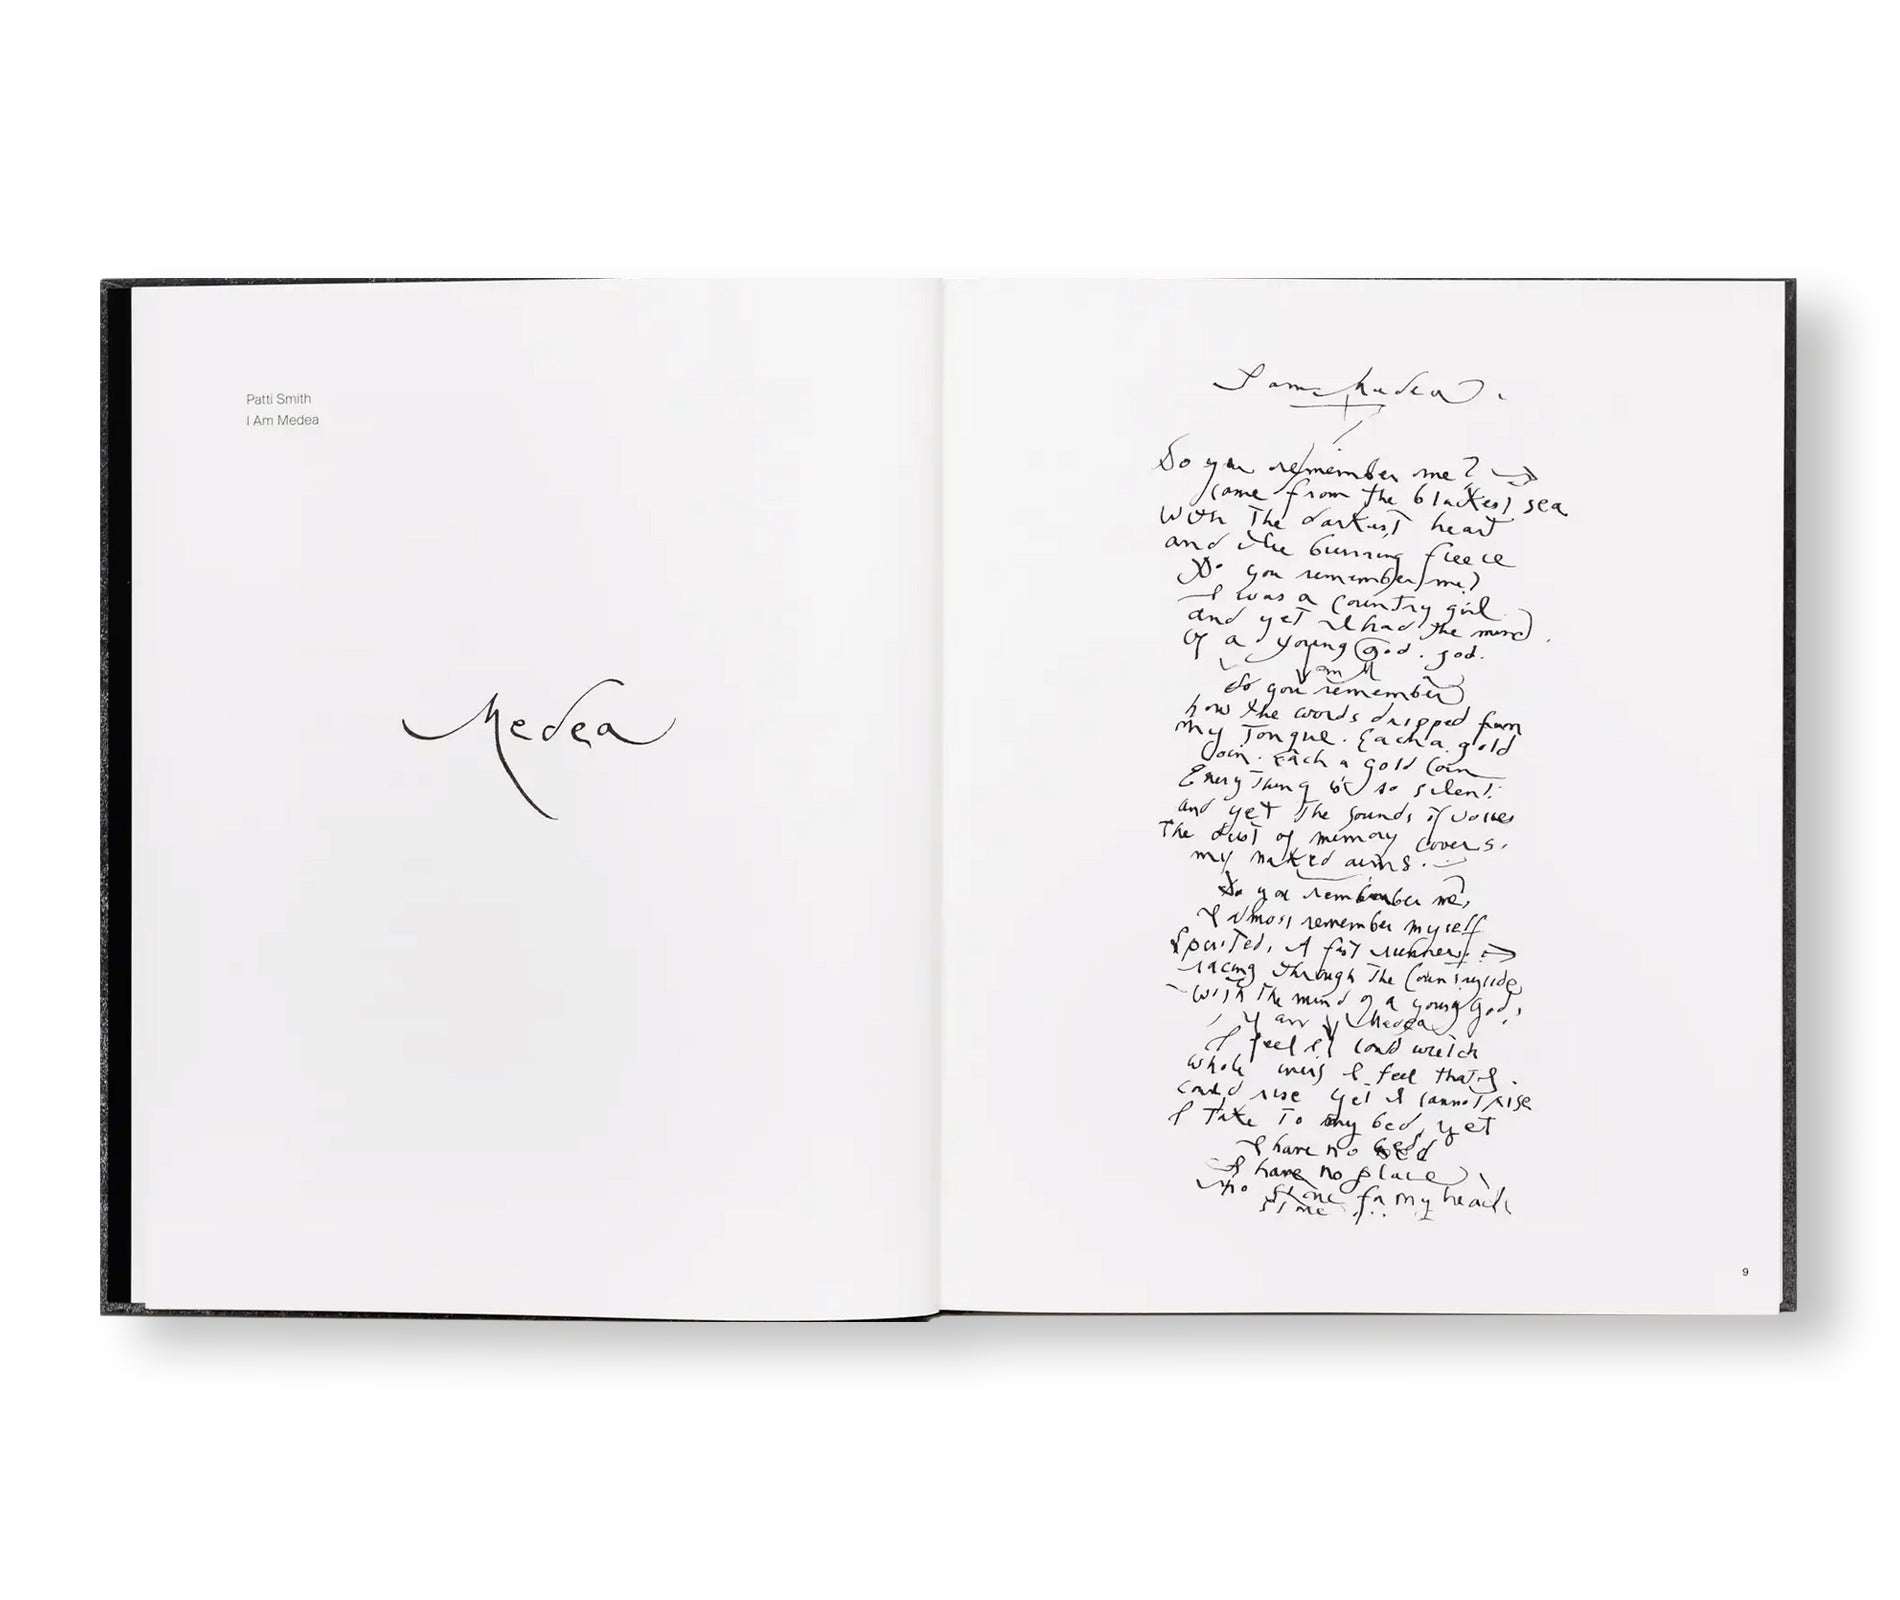 Patti Smith
I Am Medea
Medea
I am Medea.
Do you remember me?
come from the blackest sea
with the darkest heart
and the burning fleece
Do you remember me?
I was a country girl
and yet I had the mind
of a young god. god.
I am M
do you remember
how the words dripped from
my tongue. Each a gold
coin. Each a gold coin
Everything is so silent.
and yet the sounds of voices
The dust of memory covers.
my naked arms.
Do you remember me,
I almost remember myself
Spirited, A fast runner.
racing through the countryside
with the mind of a young god,
I am Medea
I feel I could wretch
whole I feel that I
could rise yet I cannot rise
I take to my bed, yet
I have no bed
I have no place
no stone for my head
stone
9